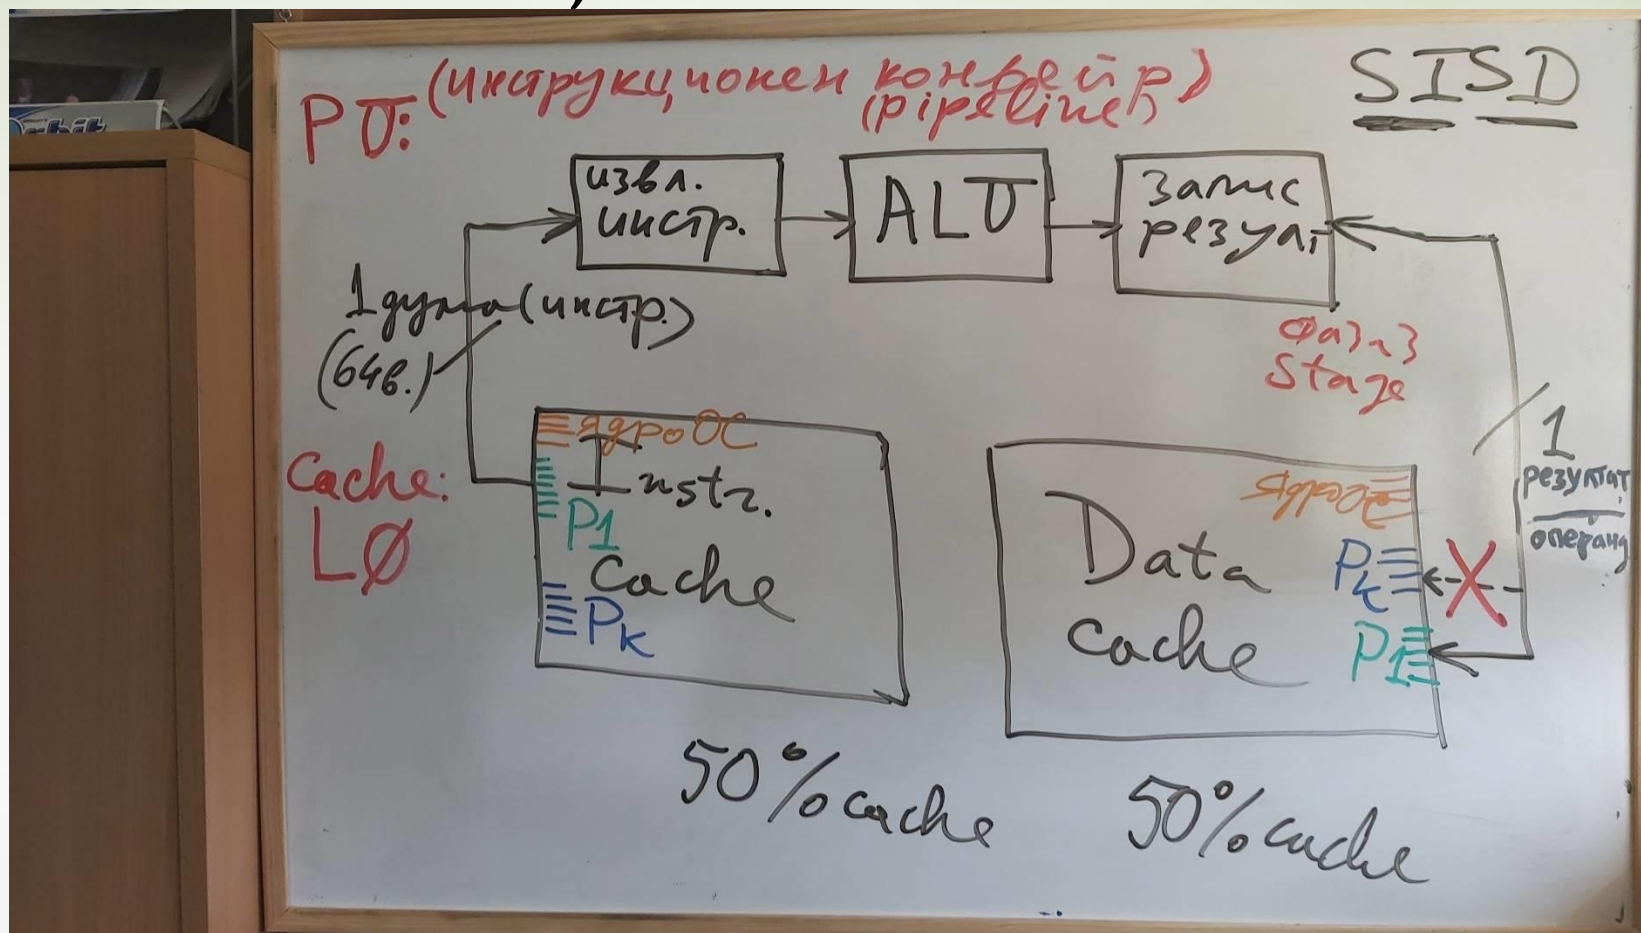 Orbit
PU: (инструкционен конвейр)
(pipeline)
SISD
извл.
инстр.
ALU
запис
резулт
1 дума (инстр.)
(64в.)
фаза 3
Stage
Cache:
LØ
ядро ОС
Instr.
P1
Cache
Pk
ядро ОС
Data
cache
Pk
X
P1
1
резултат
операнд
50% cache
50% cache